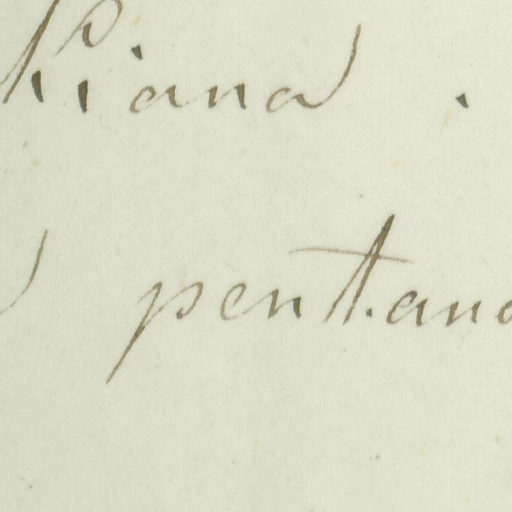 kiana .
pentand